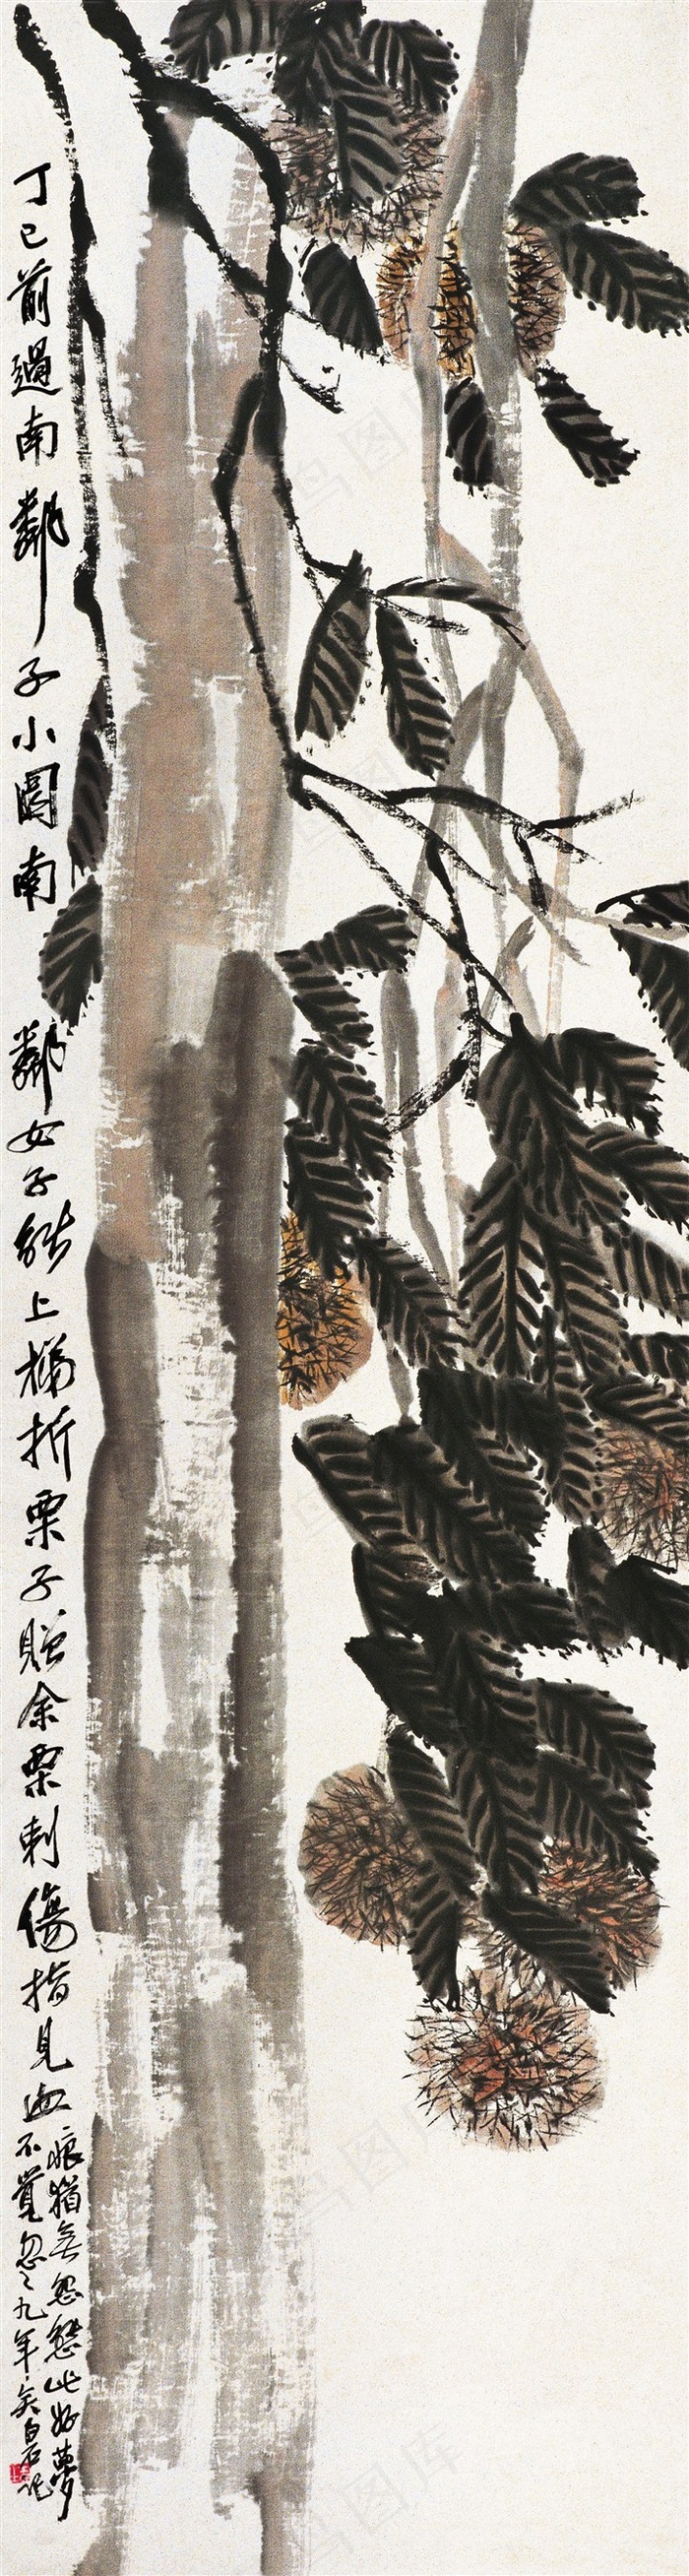 丁巳前過南鄰子小園南鄰女子能上梯折栗子贈余栗刺傷指見血
痕猶無怨態此好夢
不覺忽忽九年矣白石記